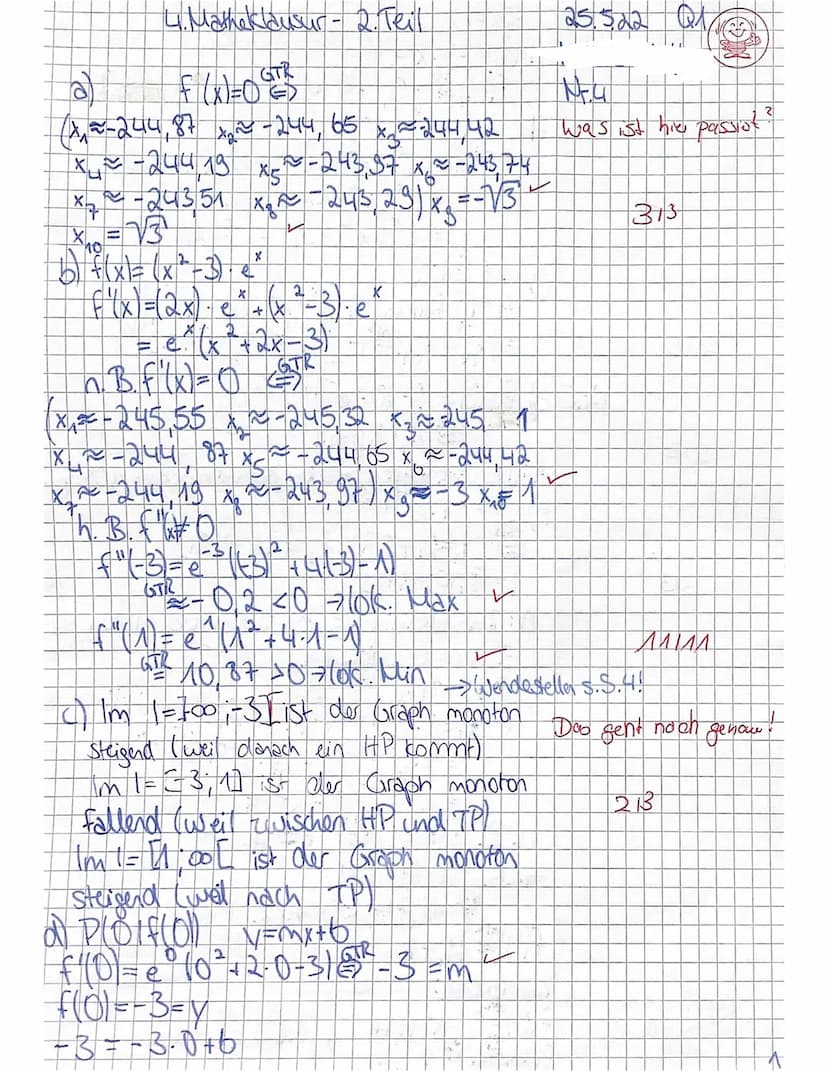 4. Matheklausur - 2. Teil 25.5.22 Q1
a) f(x)=0 GTR ⇔ Nr.4
(x₁≈-244,87 x₂≈-244,65 x₃≈-244,42 Was ist hier passiert?
x₄≈-244,19 x₅≈-243,97 x₆≈-243,74
x₇≈-243,51 x₈≈-243,29) x₉=-√3 ✓
x₁₀=√3 ✓ 3/3
b) f(x)=(x²-3)·eˣ
f'(x)=(2x)·eˣ+(x²-3)·eˣ
=eˣ(x²+2x-3)
n.B. f'(x)=0 GTR ⇔
(x₁≈-245,55 x₂≈-245,32 x₃≈-245,1
x₄≈-244,87 x₅≈-244,65 x₆≈-244,42
x₇≈-244,19 x₈≈-243,97) x₉=-3 x₁₀=1 ✓
h.B. f''(x)≠0
f''(-3)=e⁻³((-3)²+4(-3)-1)
GTR ≈-0,2<0 →lok. Max ✓
f''(1)=e¹(1²+4·1-1) 11/11
GTR = 10,87>0→lok. Min ✓ →Wendestellen s.S.4!
c) Im I=]∞;-3[ ist der Graph monoton Das geht noch genau!
steigend (weil danach ein HP kommt)
Im I=[-3;1] ist der Graph monoton
fallend (weil zwischen HP und TP) 2/3
Im I=[1;∞[ ist der Graph monoton
steigend (weil nach TP)
d) P(0|f(0)) y=mx+b
f'(0)=e⁰(0²+2·0-3) GTR ⇔ -3=m ✓
f(0)=-3=y
-3=-3·0+b
1